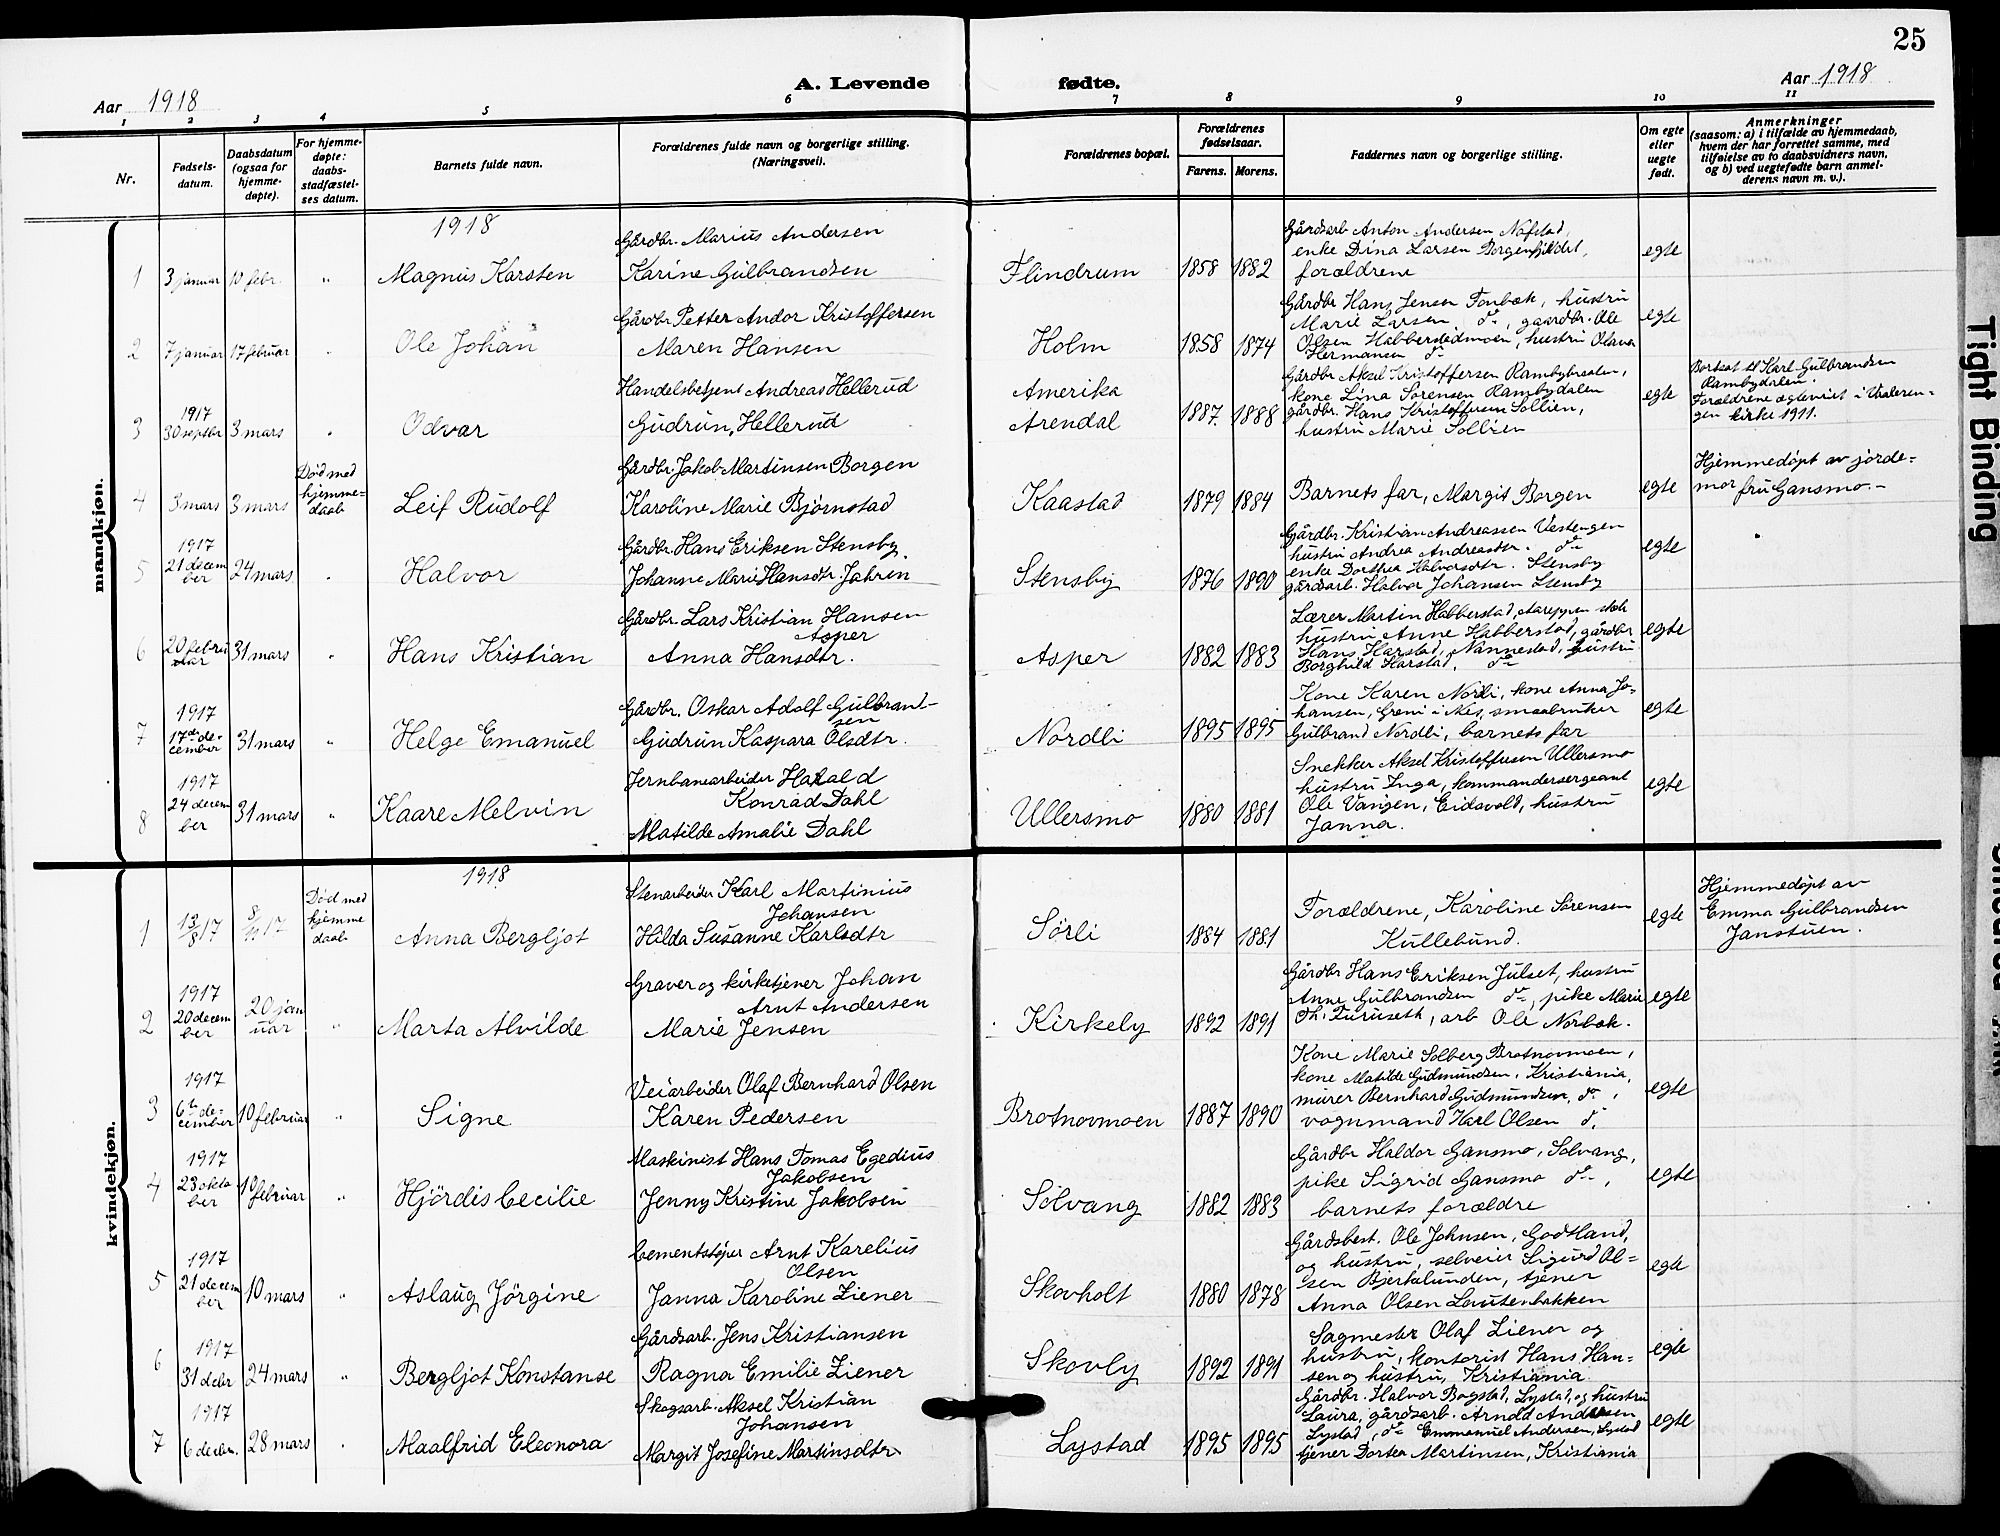 25
Aar 1918
A. Levende
fødte.
Aar 1918
1 2 3 4 5 6 7 8 9 10 11
Nr.
Fødsels-
datum.
Daabsdatum
(ogsaa for
hjemme-
døpte).
For hjemme-
døpte:
daabs-
stadfæstel-
ses datum.
Barnets fulde navn.
Forældrenes fulde navn og borgerlige stilling.
(Næringsvei).
Forældrenes bopæl.
Forældrenes
fødselsaar.
Farens. Morens.
Faddernes navn og borgerlige stilling.
Om egte
eller
uegte
født.
Anmerkninger
(saasom: a) i tilfælde av hjemmedaab,
hvem der har forrettet samme, med
tilføielse av to daabsvidners navn,
og b) ved uegtefødte barn anmel-
derens navn m. v.).
mandkjøn.
1918
1 3 januar 10 febr. " Magnus Karsten
Gårdbr. Marius Andersen
Karine Gulbrandsen
Flindrum 1858 1882
Gårdsarb Anton Andersen Nafstad,
enke Dina Larsen
forældrene
egte
2 7 januar 17 februar " Ole Johan
Gårdbr Petter Andor Kristoffersen
Maren Hansen
Holm 1858 1874
Gårdbr Hans Jensen Tonbæk, hustru
Marie Larsen do, gaardbr. Ole
Olsen Habberstadmoen, hustru Olava
Hermansen do
egte
3 1917
30 septbr 3 mars " Odvar
Handelsbetjent Andreas Hellerud
Gudrun Hellerud
Amerika
Arendal 1887. 1888
Gårdbr Aksel Kristoffersen
kone Lina Sørensen Rambydalen
gårdbr. Hans Kristoffersen Sollien,
hustru Marie Sollien
egte
Bortsat til Karl Gulbrandsen
Rambydalen.
Forældrene egteviet i Vaaleren-
gen kirke 1911.
4 3 mars 3 mars
Død med
hjemme-
daab
Leif Rudolf
Gårdbr. Jakob Martinsen Borgen
Karoline Marie Bjørnstad
Kaastad 1879 1884 Barnets far, Margit Borgen egte
Hjemmedøpt av jorde-
mor fru Gansmo.-
5 1917
21 decem
ber 24 mars " Halvor
Gårdbr. Hans Eriksen Stensby.
Johanne Marie Hansdtr. Jahren
Stensby 1876 1890
Gårdbr. Kristian Andreassen Vestengen
hustru Andrea Andreasdtr. do
enke Dorthea Halvorsdtr. Stensby
gårdsarb. Halvor Johansen Stensby
egte
6 20 febru
ar 31 mars " Hans Kristian
Gårdbr. Lars Kristian Hansen
Asper
Anna Hansdtr.
Asper 1882 1883
Lærer Martin Habberstad, Aareppen skole
hustru Anne Habberstad, gårdbr
Hans Harstad, Nannestad, hustru
Borghild Harstad, do
egte
7 1917
17de de-
cember 31 mars " Helge Emanuel
Gårdbr. Oskar Adolf Gulbrand-
sen
Gudrun Kaspara Olsdtr.
Nordli 1895 1895
Kone Karen Nordli, kone Anna Jo-
hansen, Greni i Nes, smaabruker
Gulbrand Nordli, barnets far
egte
8 1917
24 decem
ber 31 mars " Kaare Melvin
Jernbanearbeider Harald
Konrad Dahl
Matilde Amalie Dahl
Ullersmo 1880 1881
Snekker Aksel Kristoffersen Ullersmo
hustru Inga, kommandersergeant
Ole Vangen, Eidsvold, hustru
Janna.
egte
kvindekjøn.
1918
1 13/8 17 8/11 17
Død med
hjemme
daab
Anna Bergljot
Stenarbeider Karl Martinius
Johansen
Hilda Susanne Karlsdtr
Sörli 1884 1881
Forældrene, Karoline Sørensen
Kullebund.
egte
Hjemmedøpt av
Emma Gulbrandsen
Janstuen.
2 1917
20 decem
ber
20 jan
uar " Marta Alvilde
Graver og kirketjener Johan
Arnt Andersen
Marie Jensen
Kirkely 1892 1891
Gårdbr Hans Eriksen Julset, hustru
Anne Gulbrandsen do, pike Marie
Th. Furuseth, arb Ole Norbak.
egte
3 1917
6te de-
cember 10 februar " Signe
Veiarbeider Olaf Bernhard Olsen
Karen Pedersen
Brotnovmoen 1887 1890
Kone Marie Solberg Brotnovmoen,
kone Matilde Gudmundsen, Kristiania,
murer Bernhard Gudmundsen, do,
vognmand Karl Olsen do
egte
4 1917
23 okto
ber 10 februar " Hjördis Cecilie
Maskinist Hans Tomas Egedius
Jakobsen
Jenny Kristine Jakobsen
Solvang 1882 1883
Gårdbr Haldor Gansmo, Solvang,
pike Sigrid Gansmo do,
barnets forældre
egte
5 1917
21 decem
ber 10 mars " Aslaug Jörgine
Cementstøper Arnt Karelius
Olsen
Janna Karoline Liener
Skovholt 1880 1878
Gårdsbest. Ole Johnsen, Godtland,
og hustru, selveier Sigurd Ol-
sen Bjerkelunden, tjener
Anna Olsen Lautenbakken
egte
6 1917
31 decbr 24 mars " Bergljot Konstanse
Gårdsarb. Jens Kristiansen
Ragna Emilie Liener
Skovly 1892 1891
Sagmester Olaf Liener og
hustru, kontorist Hans Han-
sen og hustru, Kristiania.
egte
7 1917
6 decbr. 28 mars " Maalfrid Eleonora
Skogsarb. Aksel Kristian
Johansen
Margit Josefine Martinsdtr
Lystad 1895 1895
Gårdbr. Halvor Bogstad, Lystad, og hustru
Laura, gårdsarb. Arnold Andersen
Lystad, do Emmanuel Andersen, Lystad
tjener Dortea Martinsen, Kristiania
egte
Tight Binding